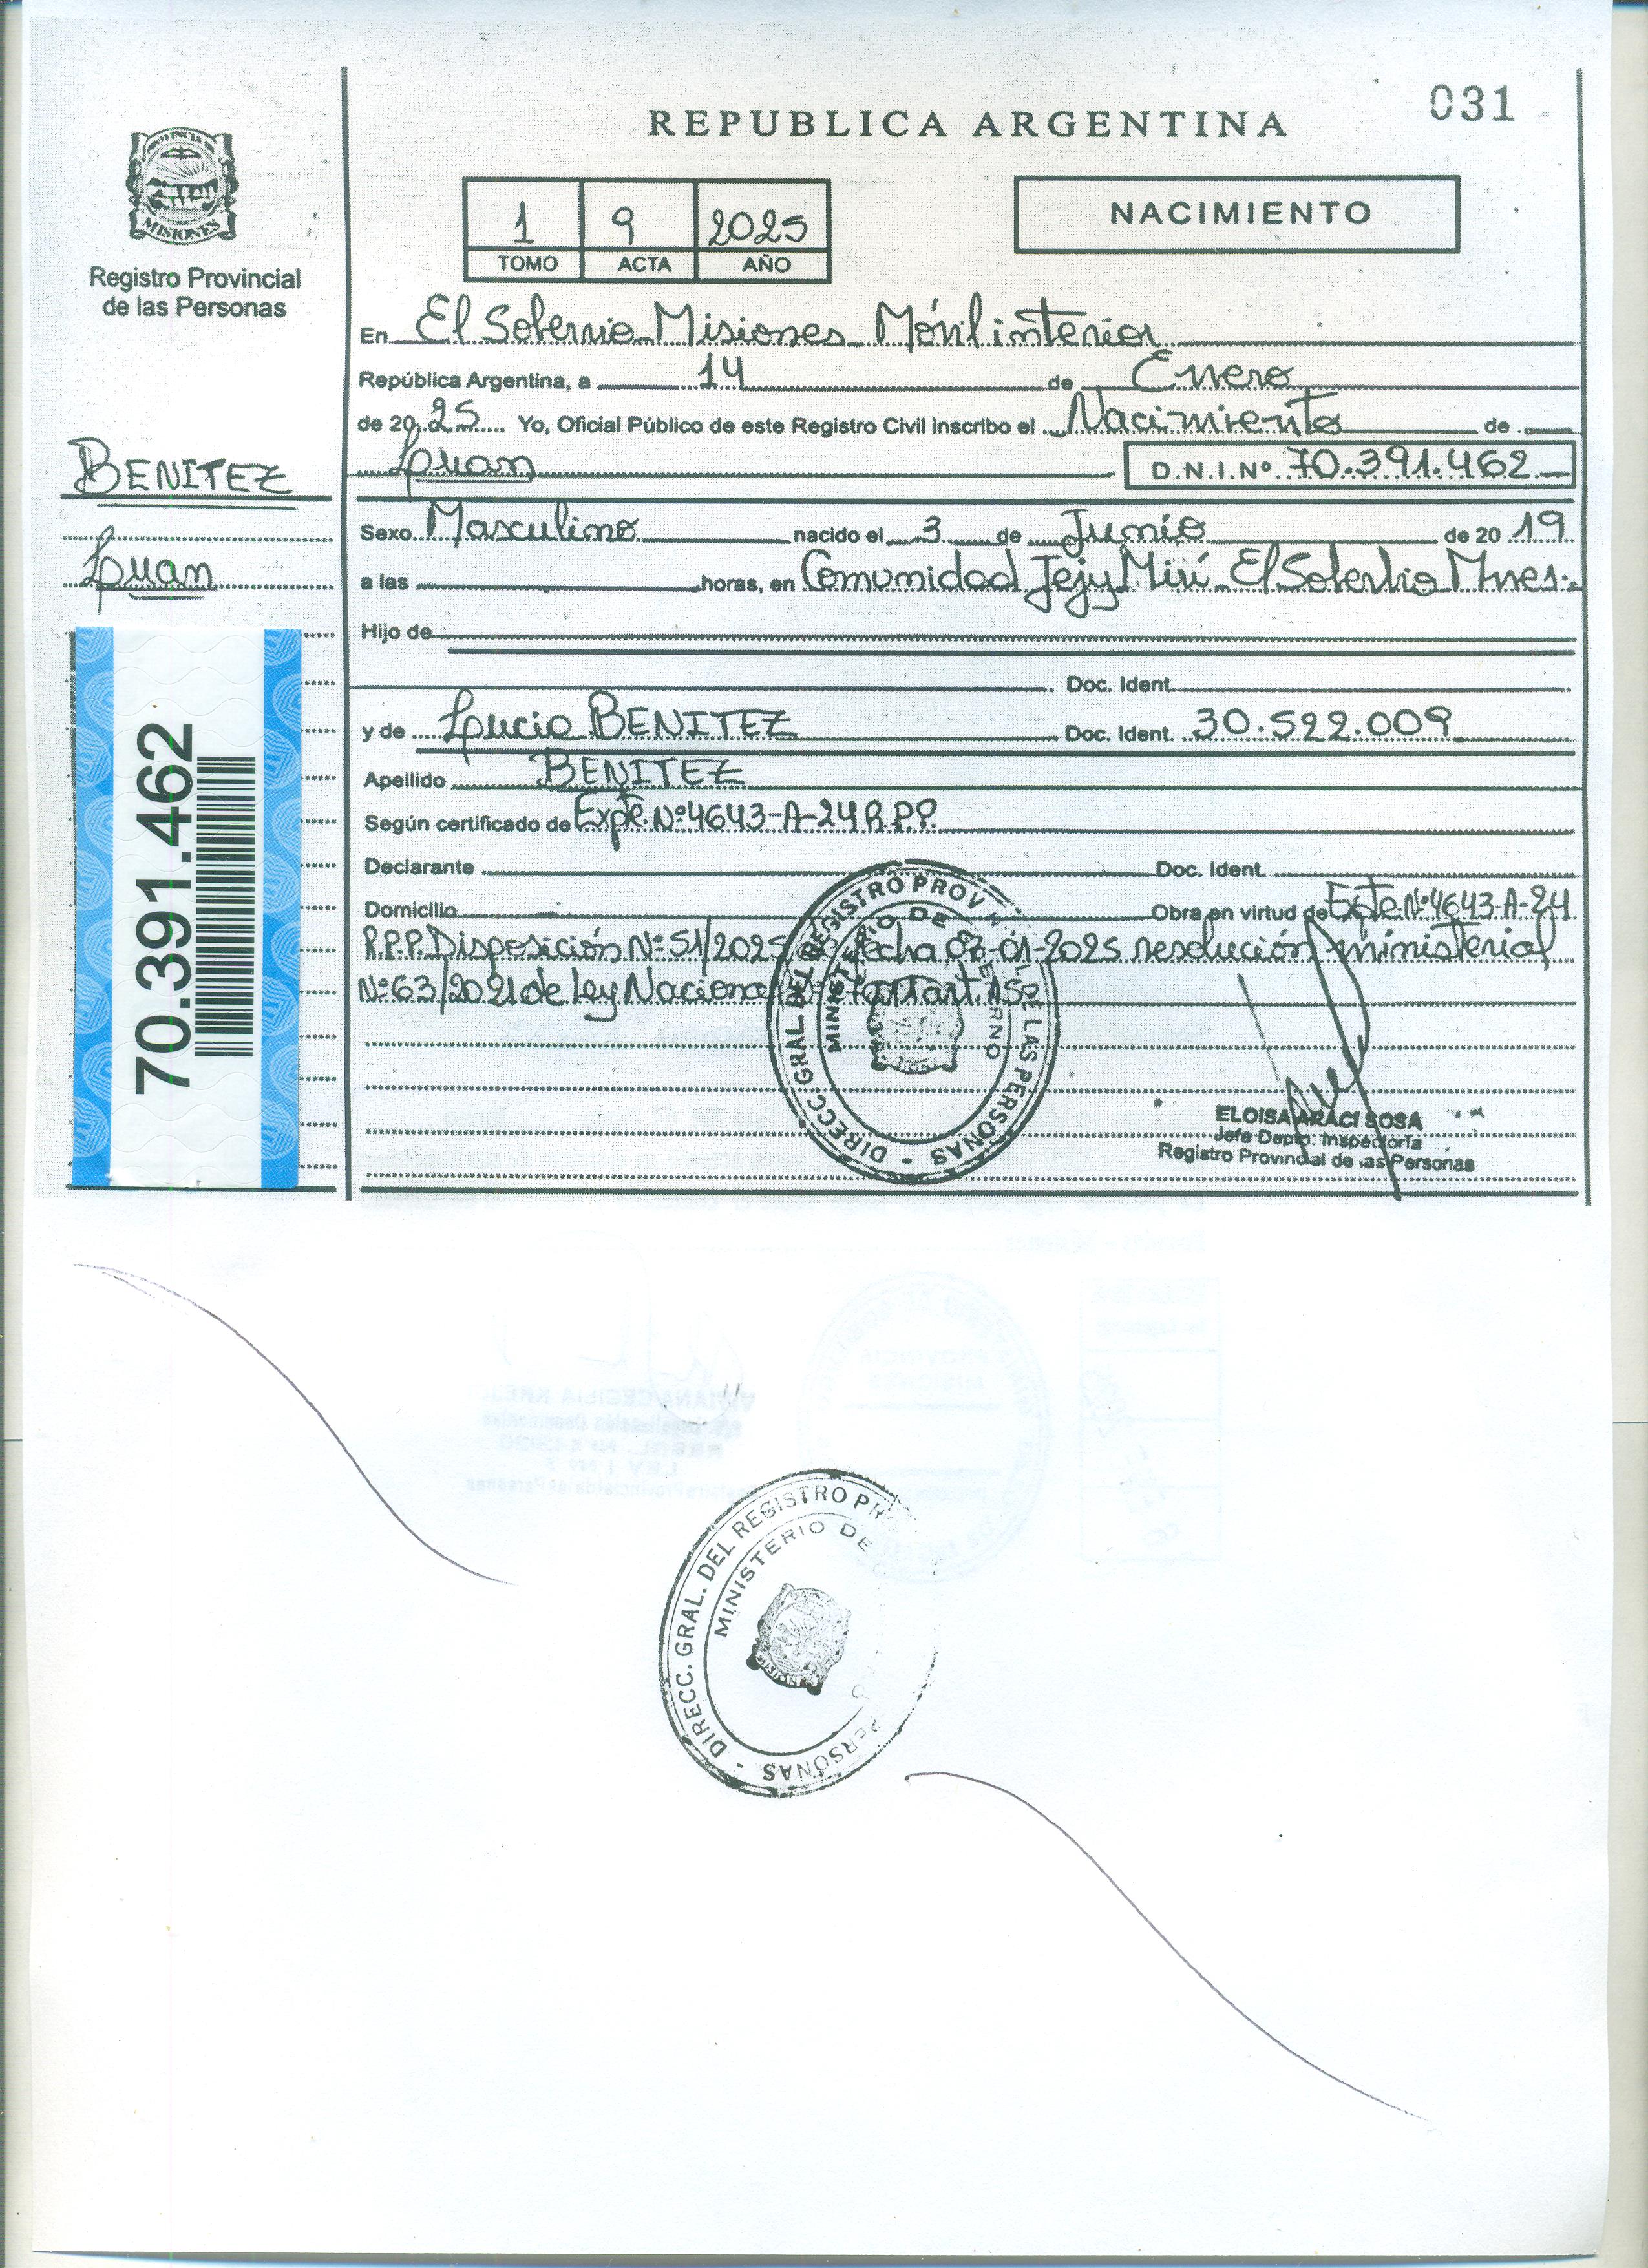 031
REPUBLICA ARGENTINA
PROVINCIA DE
MISIONES
Registro Provincial
de las Personas
1 9 2025
TOMO ACTA AÑO
NACIMIENTO
En El Soberbio Misiones Móvil interior
República Argentina, a 14 de Enero
de 20 25 Yo, Oficial Público de este Registro Civil inscribo el Nacimiento de
Luan D.N.I.Nº 70.391.462
BENITEZ
Luan
Sexo Masculino nacido el 3 de Junio de 20 19
a las horas, en Comunidad Jejy Mirí El Soberbio Mnes.
Hijo de
Doc. Ident.
y de Lucia BENITEZ Doc. Ident. 30.522.009
Apellido BENITEZ
Según certificado de Expte. Nº 4643-A-24 R.P.P.
Declarante Doc. Ident.
Domicilio Obra en virtud de Expte Nº 4643-A-24
R.P.P. Disposición Nº 51/2025 fecha 07-01-2025 resolución ministerial
Nº 63/2021 de Ley Nacional art. 15
70.391.462
DIRECC. GRAL. DEL REGISTRO PROV DE LAS PERSONAS
MINISTERIO DE
ELOISA ARACI SOSA
Jefe Depto: Inspectoría
Registro Provincial de las Personas
DIRECC. GRAL. DEL REGISTRO PERSONAS
MINISTERIO DE